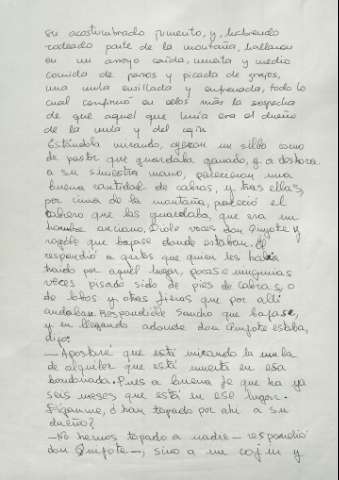 su acostumbrado jumento, y, habiendo
rodeado parte de la montaña, hallaron
en un arroyo caída, muerta y medio
comida de perros y picada de grajos,
una mula ensillada y enfrenada, todo lo
cual confirmó en ellos más la sospecha
de que aquel que huía era el dueño
de la mula y del cojín.
Estándola mirando, oyeron un silbo como
de pastor que guardaba ganado, y a deshora
a su siniestra mano, parecieron una
buena cantidad de cabras, y tras ellas,
por cima de la montaña, pareció el
cabrero que las guardaba, que era un
hombre anciano. Diole voces don Quijote y
rogóle que bajase donde estaban. Él
respondió a gritos que quien les había
traído por aquel lugar, pocas o ningunas
veces pisado sino de pies de cabras, o
de lobos y otras fieras que por allí
andaban. Respondióle Sancho que bajase,
y en llegando adonde don Quijote estaba,
dijo:
— Apostaré que está mirando la mula
de alquiler que está muerta en esa
hondonada. Pues a buena fe que ha ya
seis meses que está en ese lugar.
Díganme, ¿han topado por ahí a su
dueño?
— No hemos topado a nadie — respondió
don Quijote —, sino a un cojín y